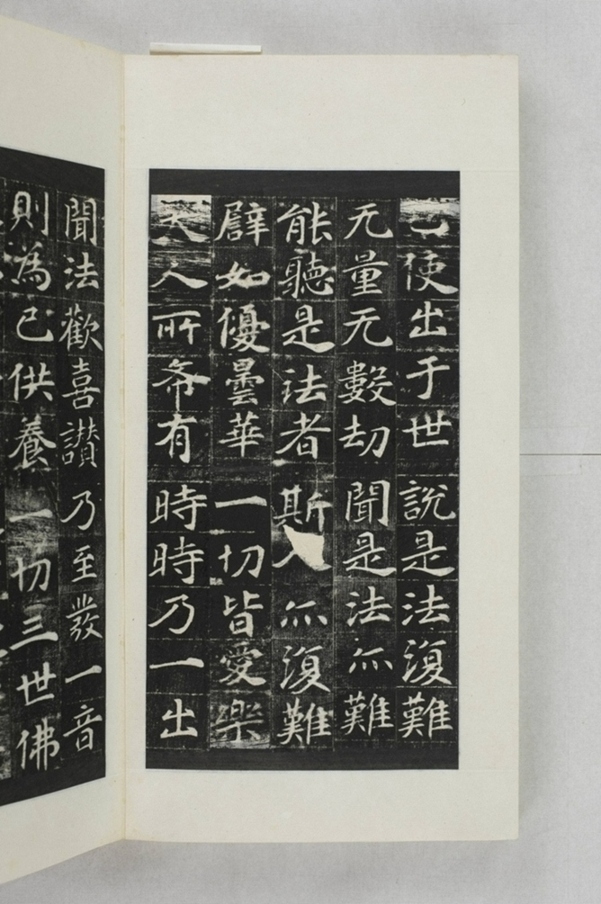 使出于世說是法復難
无量无數劫聞是法亦難
能聽是法者斯人亦復難
譬如優曇華一切皆愛樂
天人所希有時時乃一出
聞法歡喜讃乃至發一音
則為已供養一切三世佛